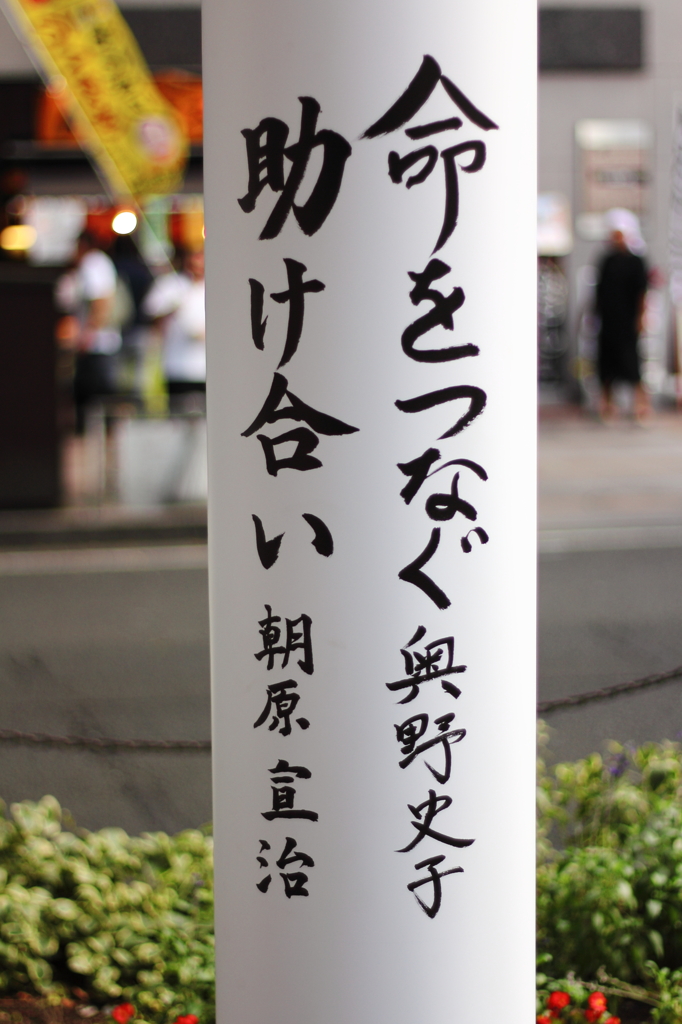 命をつなぐ 奥野史子
助け合い 朝原宣治